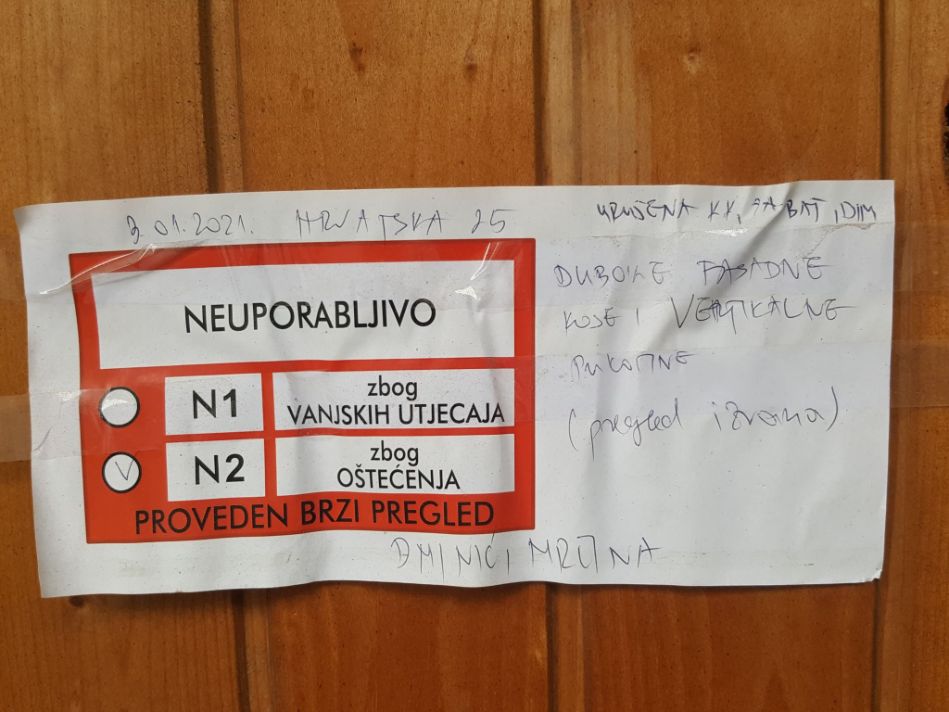 3.01.2021. HRVATSKA 25
URUŠENA KK, ZABAT, DIM
DUBOKE FASADNE
KOSE I VERTIKALNE
PUKOTINE
(pregled izvana)
NEUPORABLJIVO
N1 zbog
VANJSKIH UTJECAJA
V N2 zbog
OŠTEĆENJA
PROVEDEN BRZI PREGLED